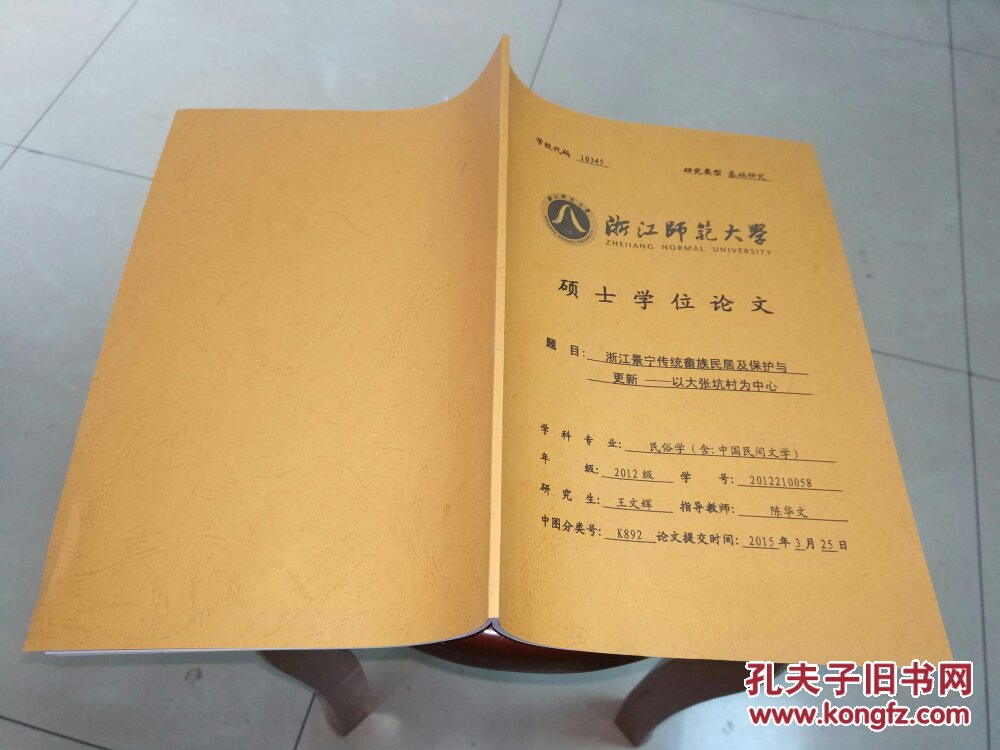 学校代码 10345
研究类型 基础研究
浙江师范大学
ZHEJIANG NORMAL UNIVERSITY
硕士学位论文
题 目: 浙江景宁传统畲族民居及保护与
更新 ——以大张坑村为中心
学科专业: 民俗学(含:中国民间文学)
年 级: 2012级 学 号: 2012210058
研究生: 王文辉 指导教师: 陈华文
中图分类号: K892 论文提交时间: 2015年3月25日
孔夫子旧书网
www.kongfz.com